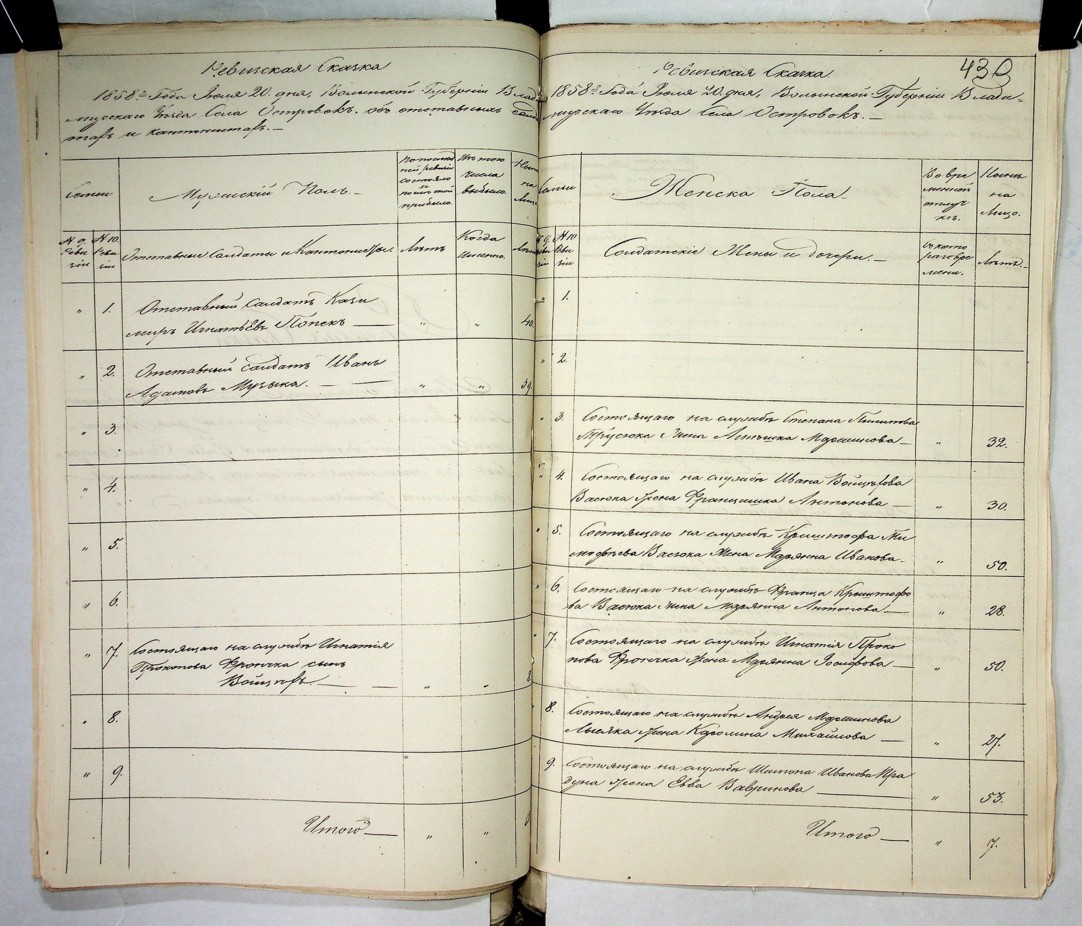 Ревизская Сказка
1858го Года Июля 20 дня, Волынской Губерніи Влади
мирскаго Уезда Села Островокъ. объ отставныхъ солда
тахъ и кантонистахъ.—
Семьи
Мужескій Полъ.
числа
выбыло.
на
Лицо
№ 9.
Реви
зіи
№ 10.
Реви
зіи
Отставные солдаты и Кантонисты.
Лѣтъ
Когда
Именно.
Лѣтъ
„ 1. Отставный Солдатъ Кази
миръ Игнатьевъ Попекъ — „ „ 40.
„ 2. Отставный солдатъ Иванъ
Адамовъ Музыка. — „ „ 39.
„ 3.
„ 4.
„ 5.
„ 6.
„ 7. Состоящаго на службѣ Игнатія
Прокопова сынъ
Войцѣхъ. — „ „ 8
„ 8.
„ 9.
Итого — „ „
439
Ревизская Сказка
1858го Года Июля 20 дня, Волынской Губерніи Влади-
мирскаго Уезда Села Островокъ.—
Семьи
Женска Пола.
Во вре
менной
отлуч
кѣ.
на
Лицо.
№ 9.
Реви
зіи
№ 10
Реви
зіи
Солдатскіе Жены и дочери.—
Съ кото
раго вре
мени.
Лѣтъ.
„ 1.
„ 2.
„ 3. Состоящаго на службѣ Степана
жена — „ 32.
„ 4. Состоящаго на службѣ Ивана
Васюка Жена Францишка Антонова — „ 30.
„ 5. Состоящаго на службѣ Криштофа Ти
мофѣева Васюка Жена Марянна Иванова. „ 50.
„ 6. Состоящаго на службѣ Франца Криштофо
ва Васюка жена Марянна Антонова — „ 28.
„ 7. Состоящаго на службѣ Игнатія Проко
пова Жена Марянна Іосифова „ 50.
„ 8. Состоящаго на службѣ Андрея Мартинова
Жена Каролина Михайлова — „ 27.
„ 9. Состоящаго на службѣ Шимона Иванова
Жена Евва Вавринова — „ 53.
Итого — „ 7.